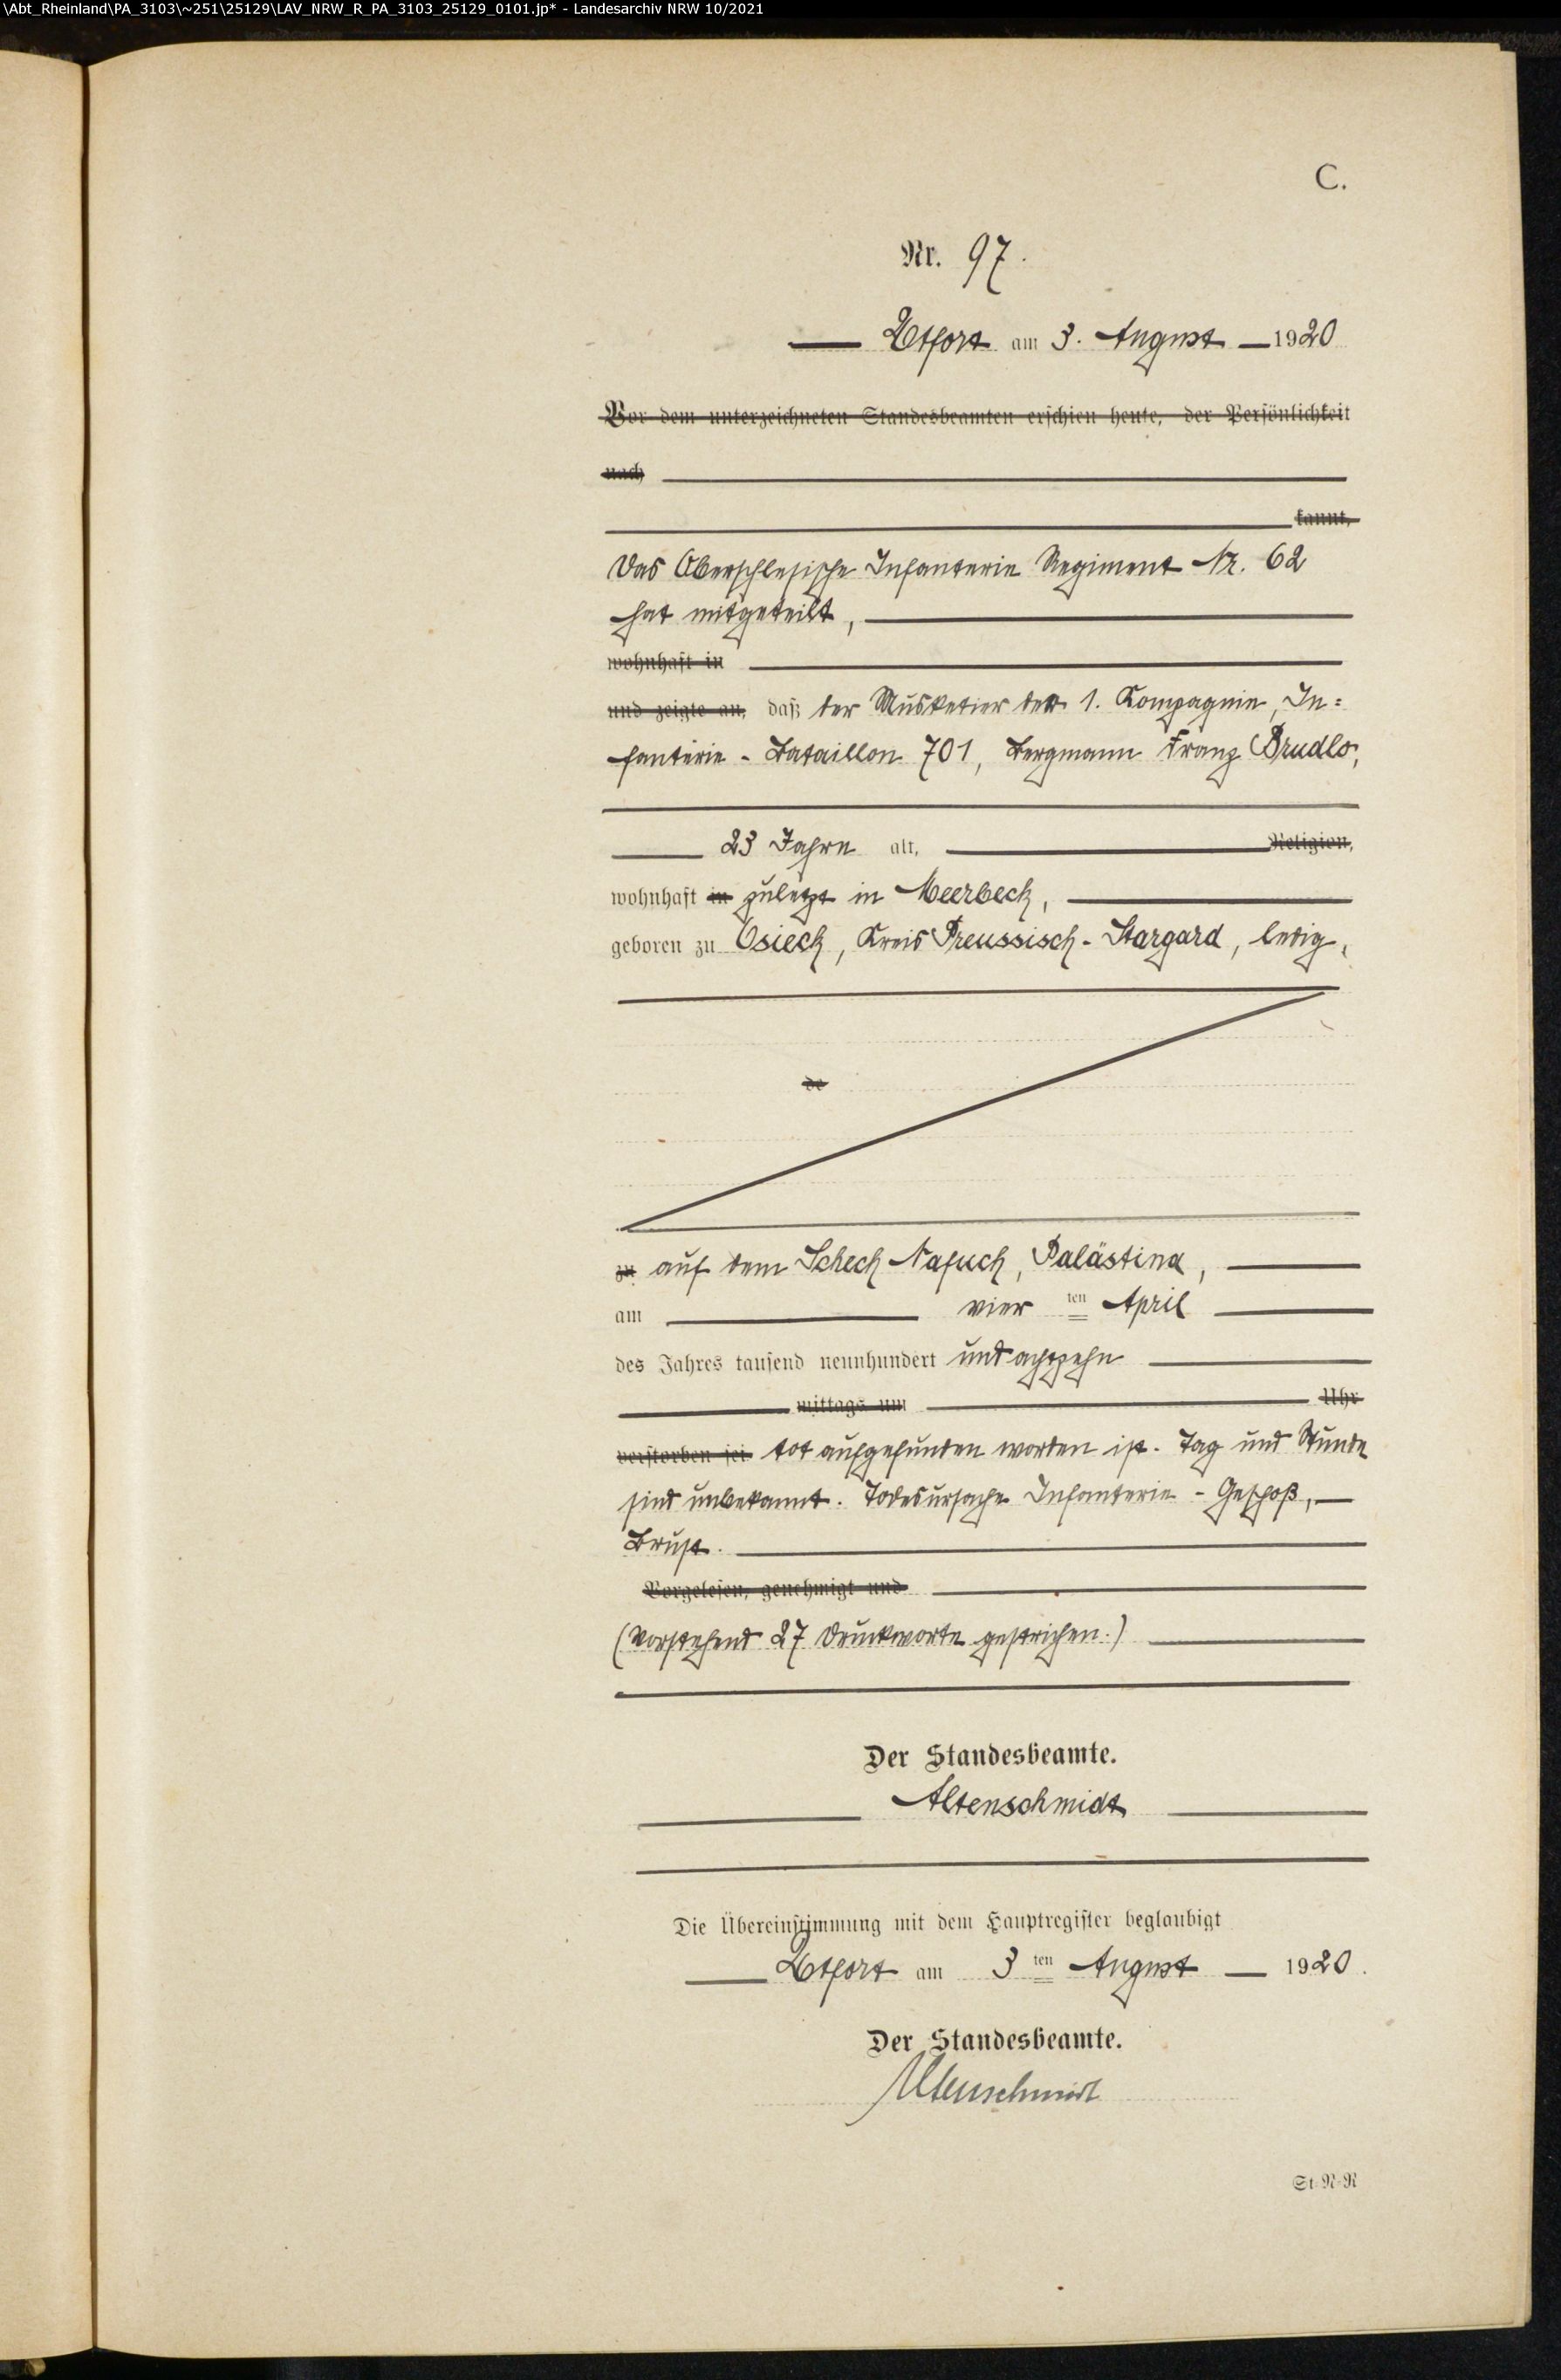 \Abt_Rheinland\PA_3103\~251\25129\LAV_NRW_R_PA_3103_25129_0101.jp* - Landesarchiv NRW 10/2021
C.
Nr. 97.
Utfort am 3. August 1920
Vor dem unterzeichneten Standesbeamten erschien heute, der Persönlichkeit
nach
kannt,
Das Oberschlesische Infanterie Regiment Nr. 62
hat mitgeteilt,
wohnhaft in
und zeigte an, daß der Musketier der 1. Kompagnie, In=
fanterie - Bataillon 701, Bergmann Franz Brudlo,
23 Jahre alt, Religion,
wohnhaft in zuletzt in Meerbeck,
geboren zu Osieck, Kreis Preussisch-Stargard, ledig,
de
zu auf dem Schech Nafuch, Palästina,
am vier ten April
des Jahres tausend neunhundert und achtzehn
mittags um Uhr
verstorben sei tot aufgefunden worden ist. Tag und Stunde
sind unbekannt. Todesursache Infanterie - Geschoß,
Brust.
Vorgelesen, genehmigt und
(Vorstehend 27 Druckworte gestrichen.)
Der Standesbeamte.
Altenschmidt
Die Übereinstimmung mit dem Hauptregister beglaubigt
Utfort am 3 ten August 1920.
Der Standesbeamte.
Altenschmidt
St-N-R